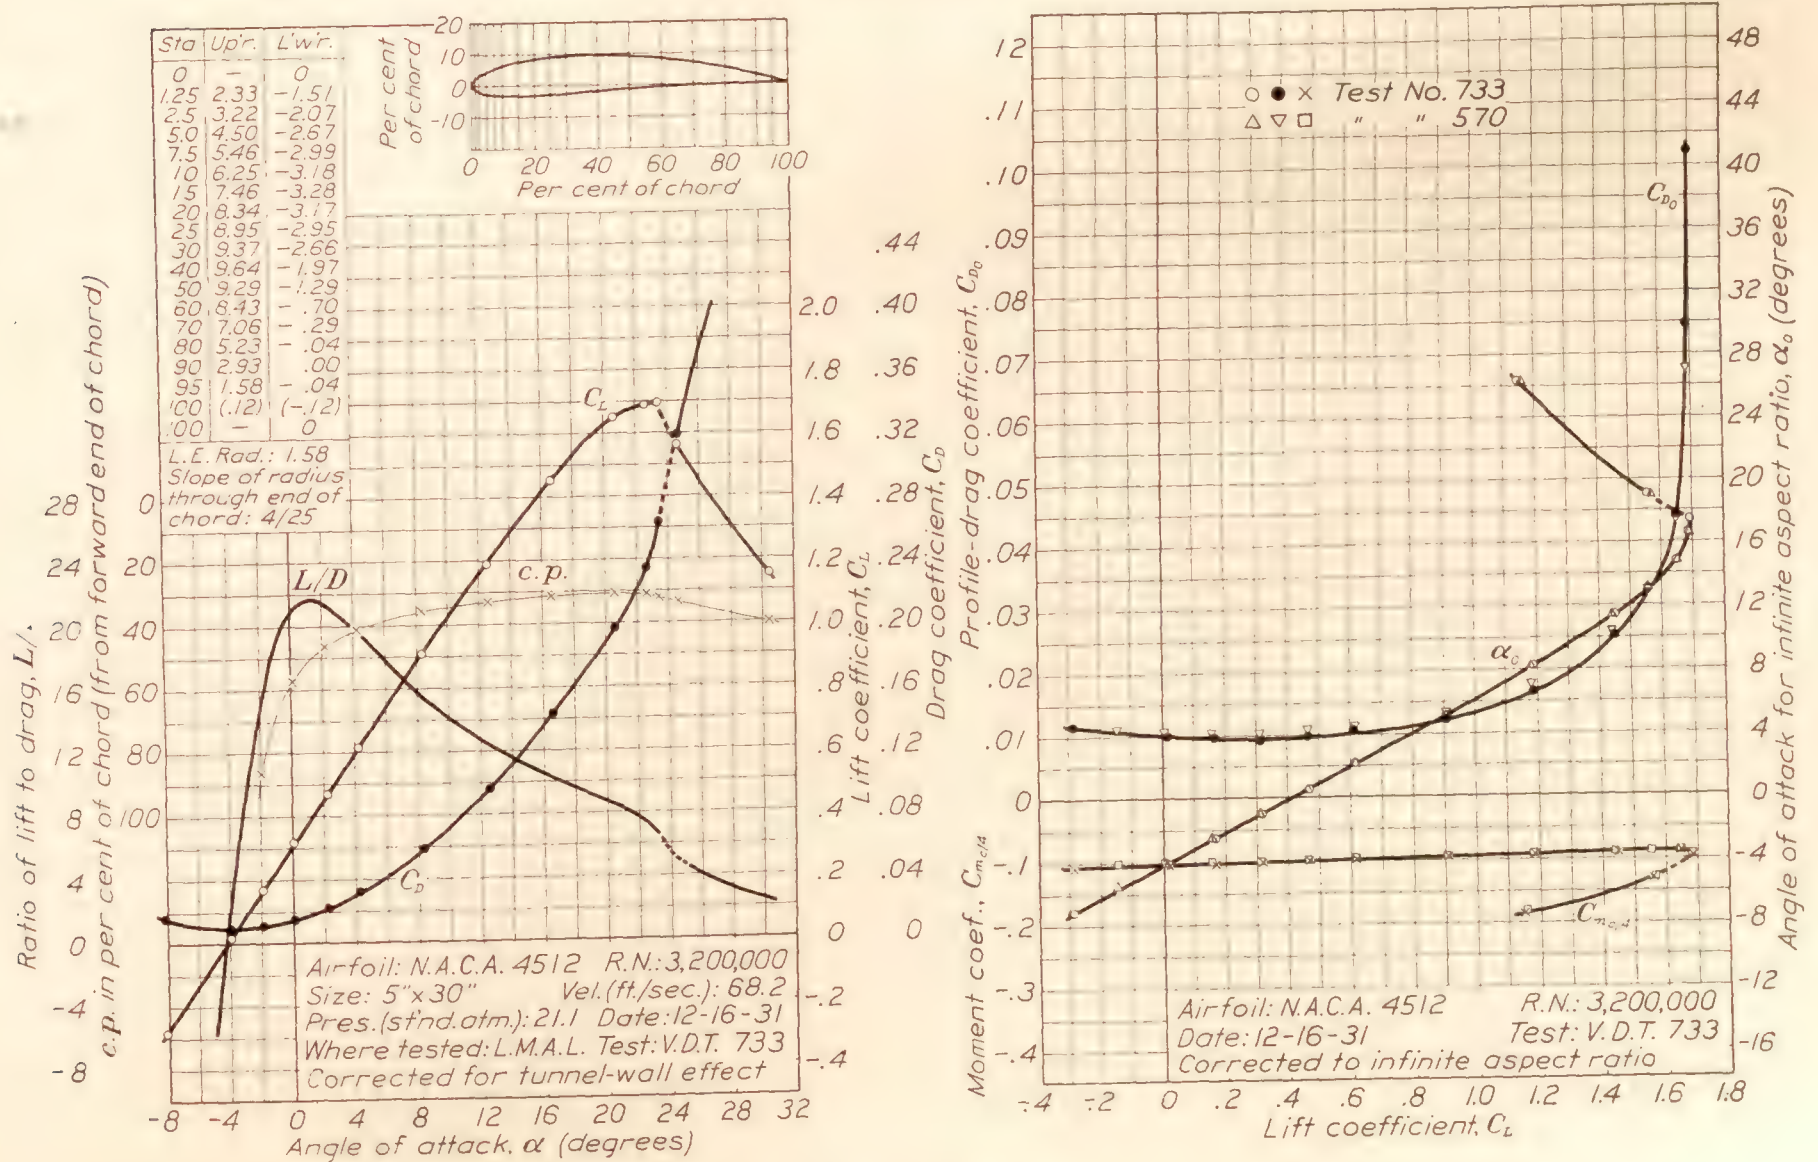 Sta Up'r. L'w'r.
0 – 0
1.25 2.33 -1.51
2.5 3.22 -2.07
5.0 4.50 -2.67
7.5 5.46 -2.99
10 6.25 -3.18
15 7.46 -3.28
20 8.34 -3.17
25 8.95 -2.95
30 9.37 -2.66
40 9.64 -1.97
50 9.29 -1.29
60 8.43 - .70
70 7.06 - .29
80 5.23 - .04
90 2.93 .00
95 1.58 - .04
100 (.12) (-.12)
100 – 0
L.E. Rad.: 1.58
Slope of radius
through end of
chord: 4/25
Per cent
of chord
20
10
0
-10
0 20 40 60 80 100
Per cent of chord
Ratio of lift to drag, L/
28
24
20
16
12
8
4
0
-4
-8
c.p. in per cent of chord (from forward end of chord)
0
20
40
60
80
100
L/D
c.p.
C_L
C_D
2.0
1.8
1.6
1.4
1.2
1.0
.8
.6
.4
.2
0
-.2
-.4
Lift coefficient, C_L
.44
.40
.36
.32
.28
.24
.20
.16
.12
.08
.04
0
Drag coefficient, C_D
Airfoil: N.A.C.A. 4512 R.N.: 3,200,000
Size: 5"x30" Vel.(ft./sec.): 68.2
Pres.(st'nd. atm.): 21.1 Date: 12-16-31
Where tested: L.M.A.L. Test: V.D.T. 733
Corrected for tunnel-wall effect
-8 -4 0 4 8 12 16 20 24 28 32
Angle of attack, α (degrees)
○ ● × Test No. 733
△ ▽ □ " " 570
Profile-drag coefficient, C_D0
.12
.11
.10
.09
.08
.07
.06
.05
.04
.03
.02
.01
0
Moment coef., C_mc/4
-.1
-.2
-.3
-.4
C_D0
α_0
C_mc/4
48
44
40
36
32
28
24
20
16
12
8
4
0
-4
-8
-12
-16
Angle of attack for infinite aspect ratio, α_0 (degrees)
Airfoil: N.A.C.A. 4512 R.N.: 3,200,000
Date: 12-16-31 Test: V.D.T. 733
Corrected to infinite aspect ratio
-.4 -.2 0 .2 .4 .6 .8 1.0 1.2 1.4 1.6 1.8
Lift coefficient, C_L